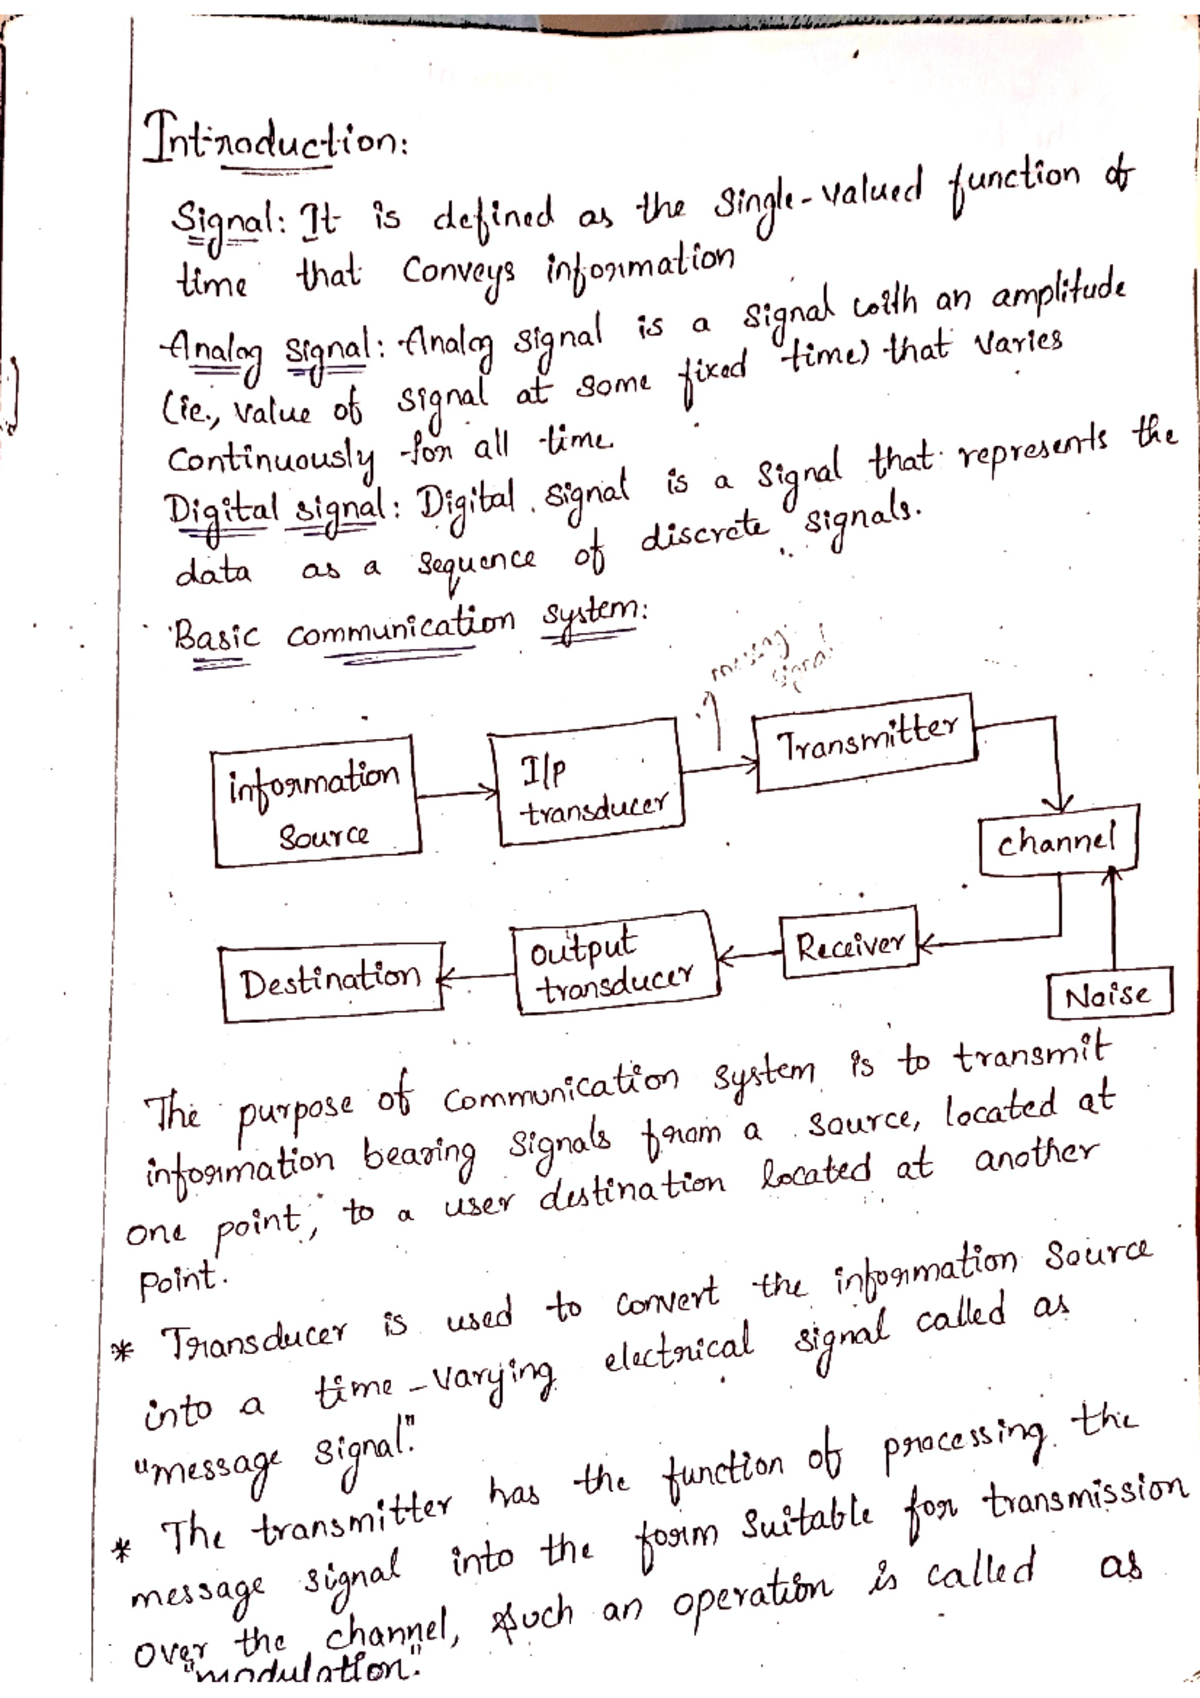 Introduction:
Signal: It is defined as the Single-valued function of
time that Conveys information
Analog signal: Analog signal is a signal with an amplitude
(ie., value of signal at some fixed time) that varies
Continuously for all time.
Digital signal: Digital signal is a signal that represents the
data as a sequence of discrete signals.
Basic communication system:
message
signal
information
Source
I/p
transducer
Transmitter
channel
Destination
output
transducer
Receiver
Noise
The purpose of communication system is to transmit
information bearing signals from a source, located at
one point, to a user destination located at another
point.
* Transducer is used to convert the information Source
into a time-varying electrical signal called as
"message signal."
* The transmitter has the function of processing the
message signal into the form suitable for transmission
over the channel, such an operation is called as
"modulation."